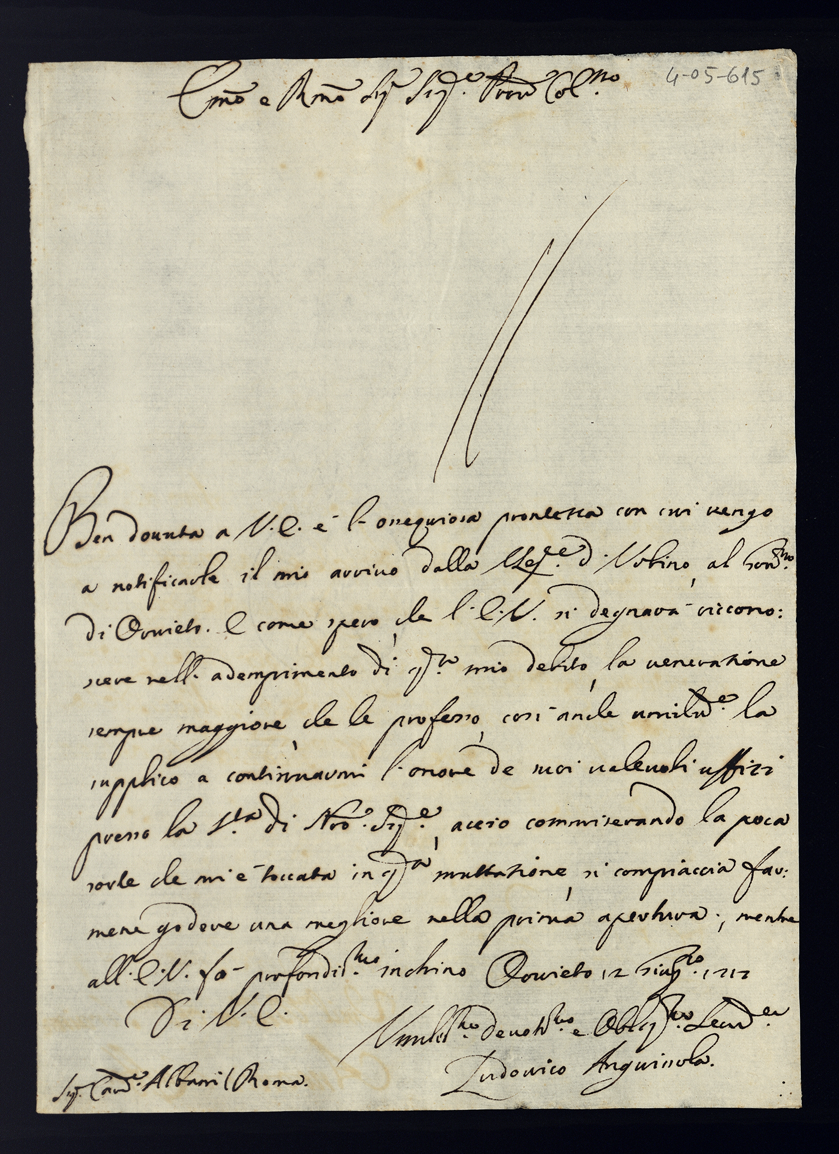 4-05-615
Emo e Rmo Sig. Sig.e Pron Col.mo
Ben douuta a V. E. è l'ossequiosa prontezza con cui uengo
a notificarle il mio arriuo dalla d'Vrbino, al
di Oruieto. E come spero, che l'E. V. si degnarà riccono:
scere nell'adempimento di q.to mio debito, la uenerazione
sempre maggiore che le professo, così anche umilm.e la
supplico a continuarmi l'onore de suoi ualeuoli uffizi
presso la S.tà di Nro. Sig.e, acciò commiserando la poca
sorte che mi è toccata in q.ta muttazione, si compiaccia far:
mene godere una megliore nella prima apertura; mentre
all'E. V. fò profondis.mo inchino Oruieto 12 Giug.o 1717
Di V. E.
Umilis.mo deuotis.mo e Oblig.mo Seru.e
Ludovico Anguissola.
Sig. Card.e Albani (Roma.